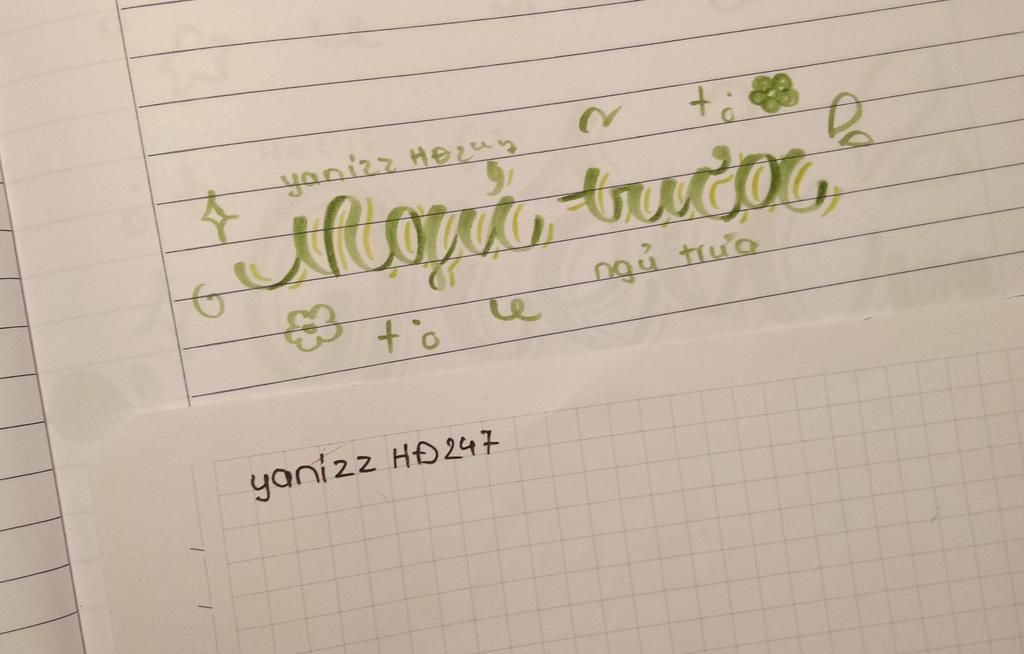 yanizz HĐ247
Ngủ trưa
ngủ trưa
yanizz HĐ247